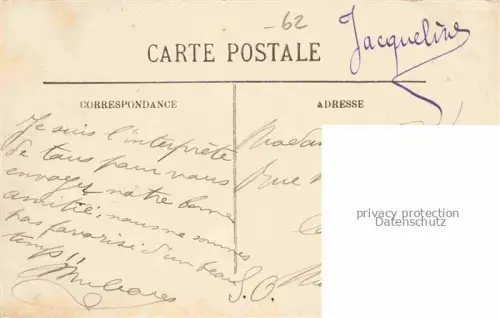 -62
Jacqueline
CARTE POSTALE
CORRESPONDANCE
ADRESSE
Je suis l'interprète
de tous pour vous
envoyer notre bonne
amitié; nous ne sommes
pas favorisé d'un beau
temps!!
Madam
Rue
S. O.
privacy protection
Datenschutz